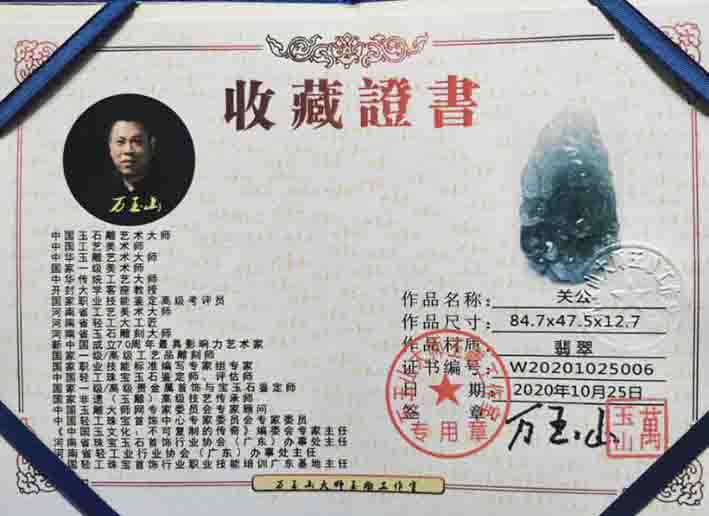 收藏證書
万玉山
中国玉石雕艺术大师
中国工艺美术师
中华玉雕艺术大师
国家一级美术师
中华传统工艺大师
开封大学客座教授
国家职业技能鉴定高级考评员
河南省工艺美术大师
河南省轻工大工匠
河南省玉石雕刻大师
新中国成立70周年最具影响力艺术家
国家一级/高级工艺品雕刻师
国家职业技能标准编写专家组专家
中国轻工珠宝玉石鉴定师、评估师
国家一级/高级贵金属首饰与宝玉石鉴定师
国家非遗（玉雕）高级技艺传承师
中国玉雕大师网专家委员会专家顾问
中国轻工珠宝首饰中心专家委员会专家委员
《中国玉文化》、不可复制的传奇》编委会专家主任
河南省珠宝玉石首饰行业协会（广东）办事处主任
河南省轻工业行业协会（广东）办事处主任
中国轻工珠宝首饰行业职业技能培训广东基地主任
作品名称：关公
作品尺寸：84.7x47.5x12.7
作品材质：翡翠
证书编号：W20201025006
日期 2020年10月25日
签章 万玉山
专用章
萬玉山
万玉山大师玉雕工作室